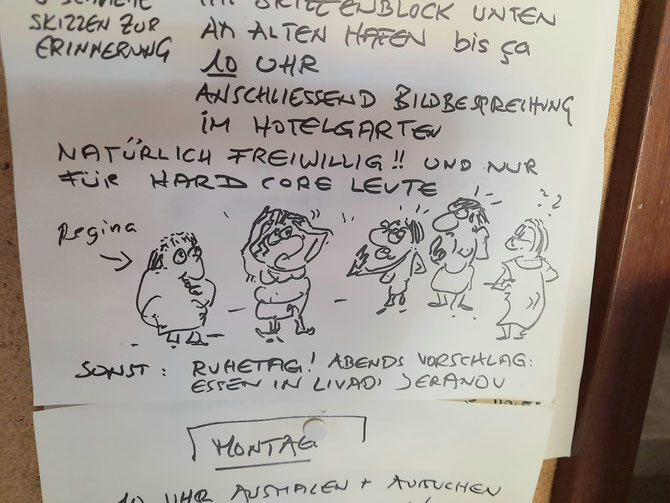 SKIZZEN ZUR
ERINNERUNG
SKIZZENBLOCK UNTEN
AM ALTEN HAFEN bis ça
10 UHR
ANSCHLIESSEND BILDBESPRECHUNG
IM HOTELGARTEN
NATÜRLICH FREIWILLIG!! UND NUR
FÜR HARD CORE LEUTE
Regina
??
SONST: RUHETAG! ABENDS VORSCHLAG:
ESSEN IN LIVADI JERANOU
MONTAG
10 UHR AUSMALEN +